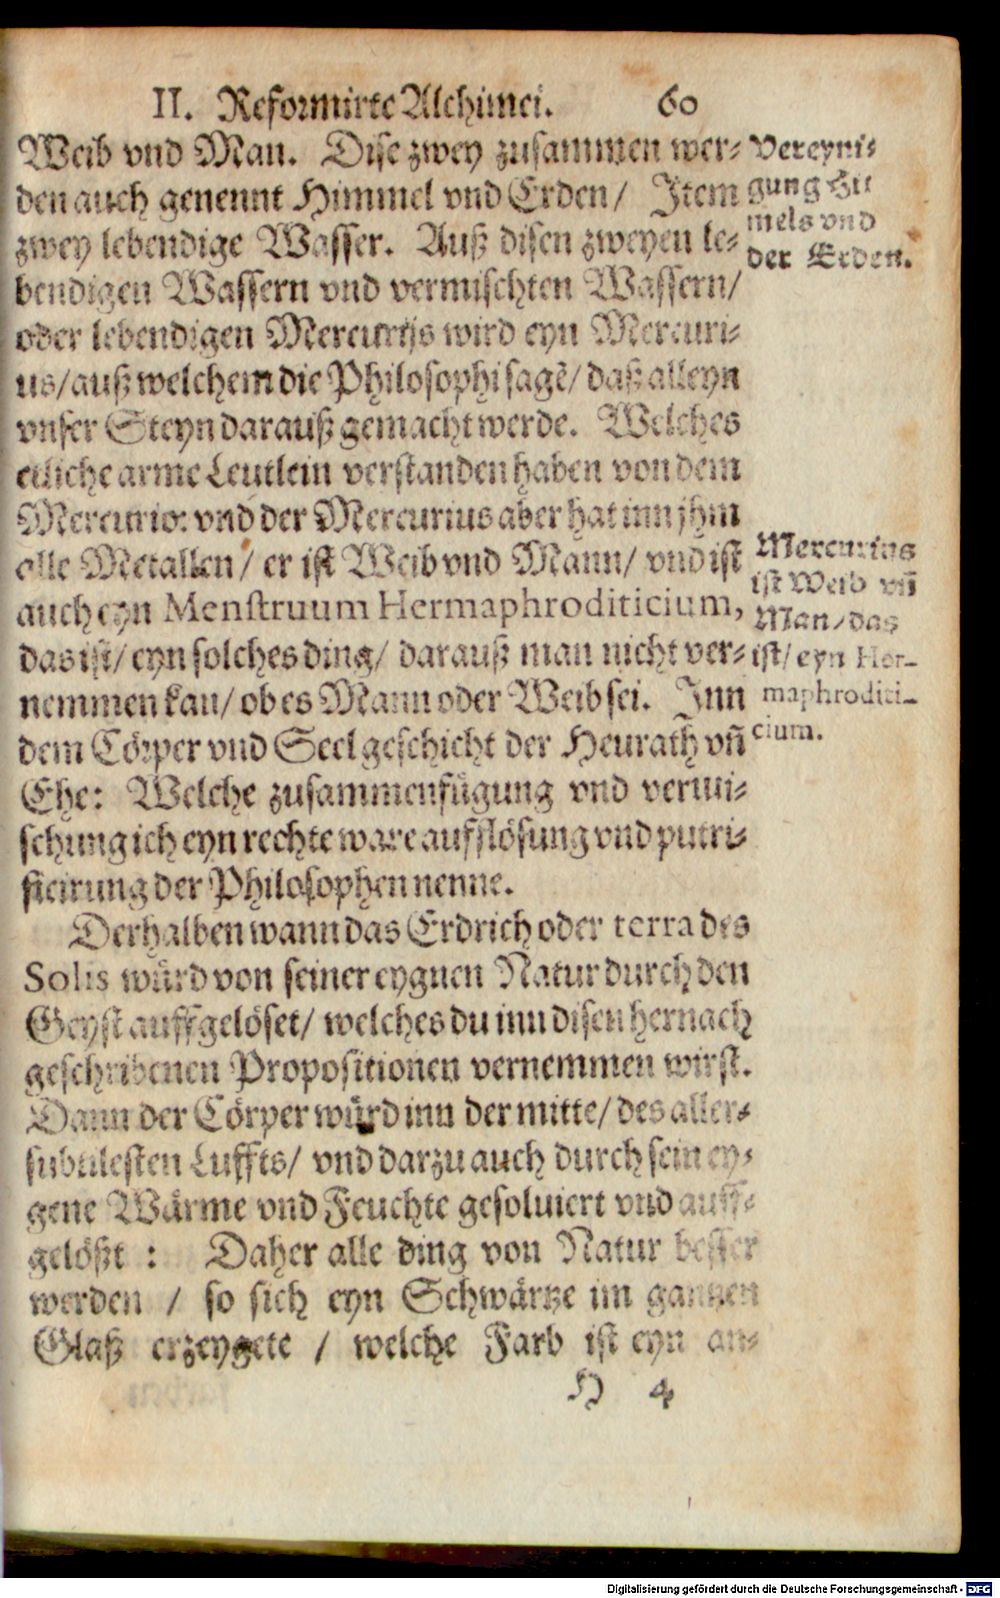 II. Reformirte Alchimei. 60
Weib vnd Man. Dise zwey zusammen wer⸗
den auch genennt Himmel vnd Erden/ Item
zwey lebendige Wasser. Auß disen zweyen le⸗
bendigen Wassern vnd vermischten Wassern/
oder lebendigen Mercurijs wird eyn Mercuri⸗
us/ auß welchem die Philosophi sagē/ daß alleyn
vnser Steyn darauß gemacht werde. Welches
etliche arme Leutlein verstanden haben von dem
Mercurio: vnd der Mercurius aber hat inn jhm
alle Metallen/ er ist Weib vnd Mann/ vnd ist
auch eyn Menstruum Hermaphroditicium,
das ist/ eyn solches ding/ darauß man nicht ver⸗
nemmen kan/ ob es Mann oder Weib sei. Inn
dem Cörper vnd Seel geschicht der Heurath vñ
Ehe: Welche zusammenfügung vnd vermi⸗
schung ich eyn rechte ware aufflösung vnd putri⸗
ficirung der Philosophen nenne.
Derhalben wann das Erdrich oder terra des
Solis würd von seiner eygnen Natur durch den
Geyst auffgelöset/ welches du inn disen hernach
geschribenen Propositionen vernemmen wirst.
Dann der Cörper würd inn der mitte/ des aller⸗
subtilesten Luffts/ vnd darzu auch durch sein ey⸗
gene Wärme vnd Feuchte gesoluiert vnd auff⸗
gelößt : Daher alle ding von Natur besser
werden / so sich eyn Schwärtze im gantzen
Glaß erzeygete / welche Farb ist eyn an⸗
H 4
Vereyni⸗
gung Hi
mels vnd
der Erden.
Mercurius
ist Weib vñ
Man/ das
ist/ eyn Her-
maphroditi-
cium.
Digitalisierung gefördert durch die Deutsche Forschungsgemeinschaft - DFG